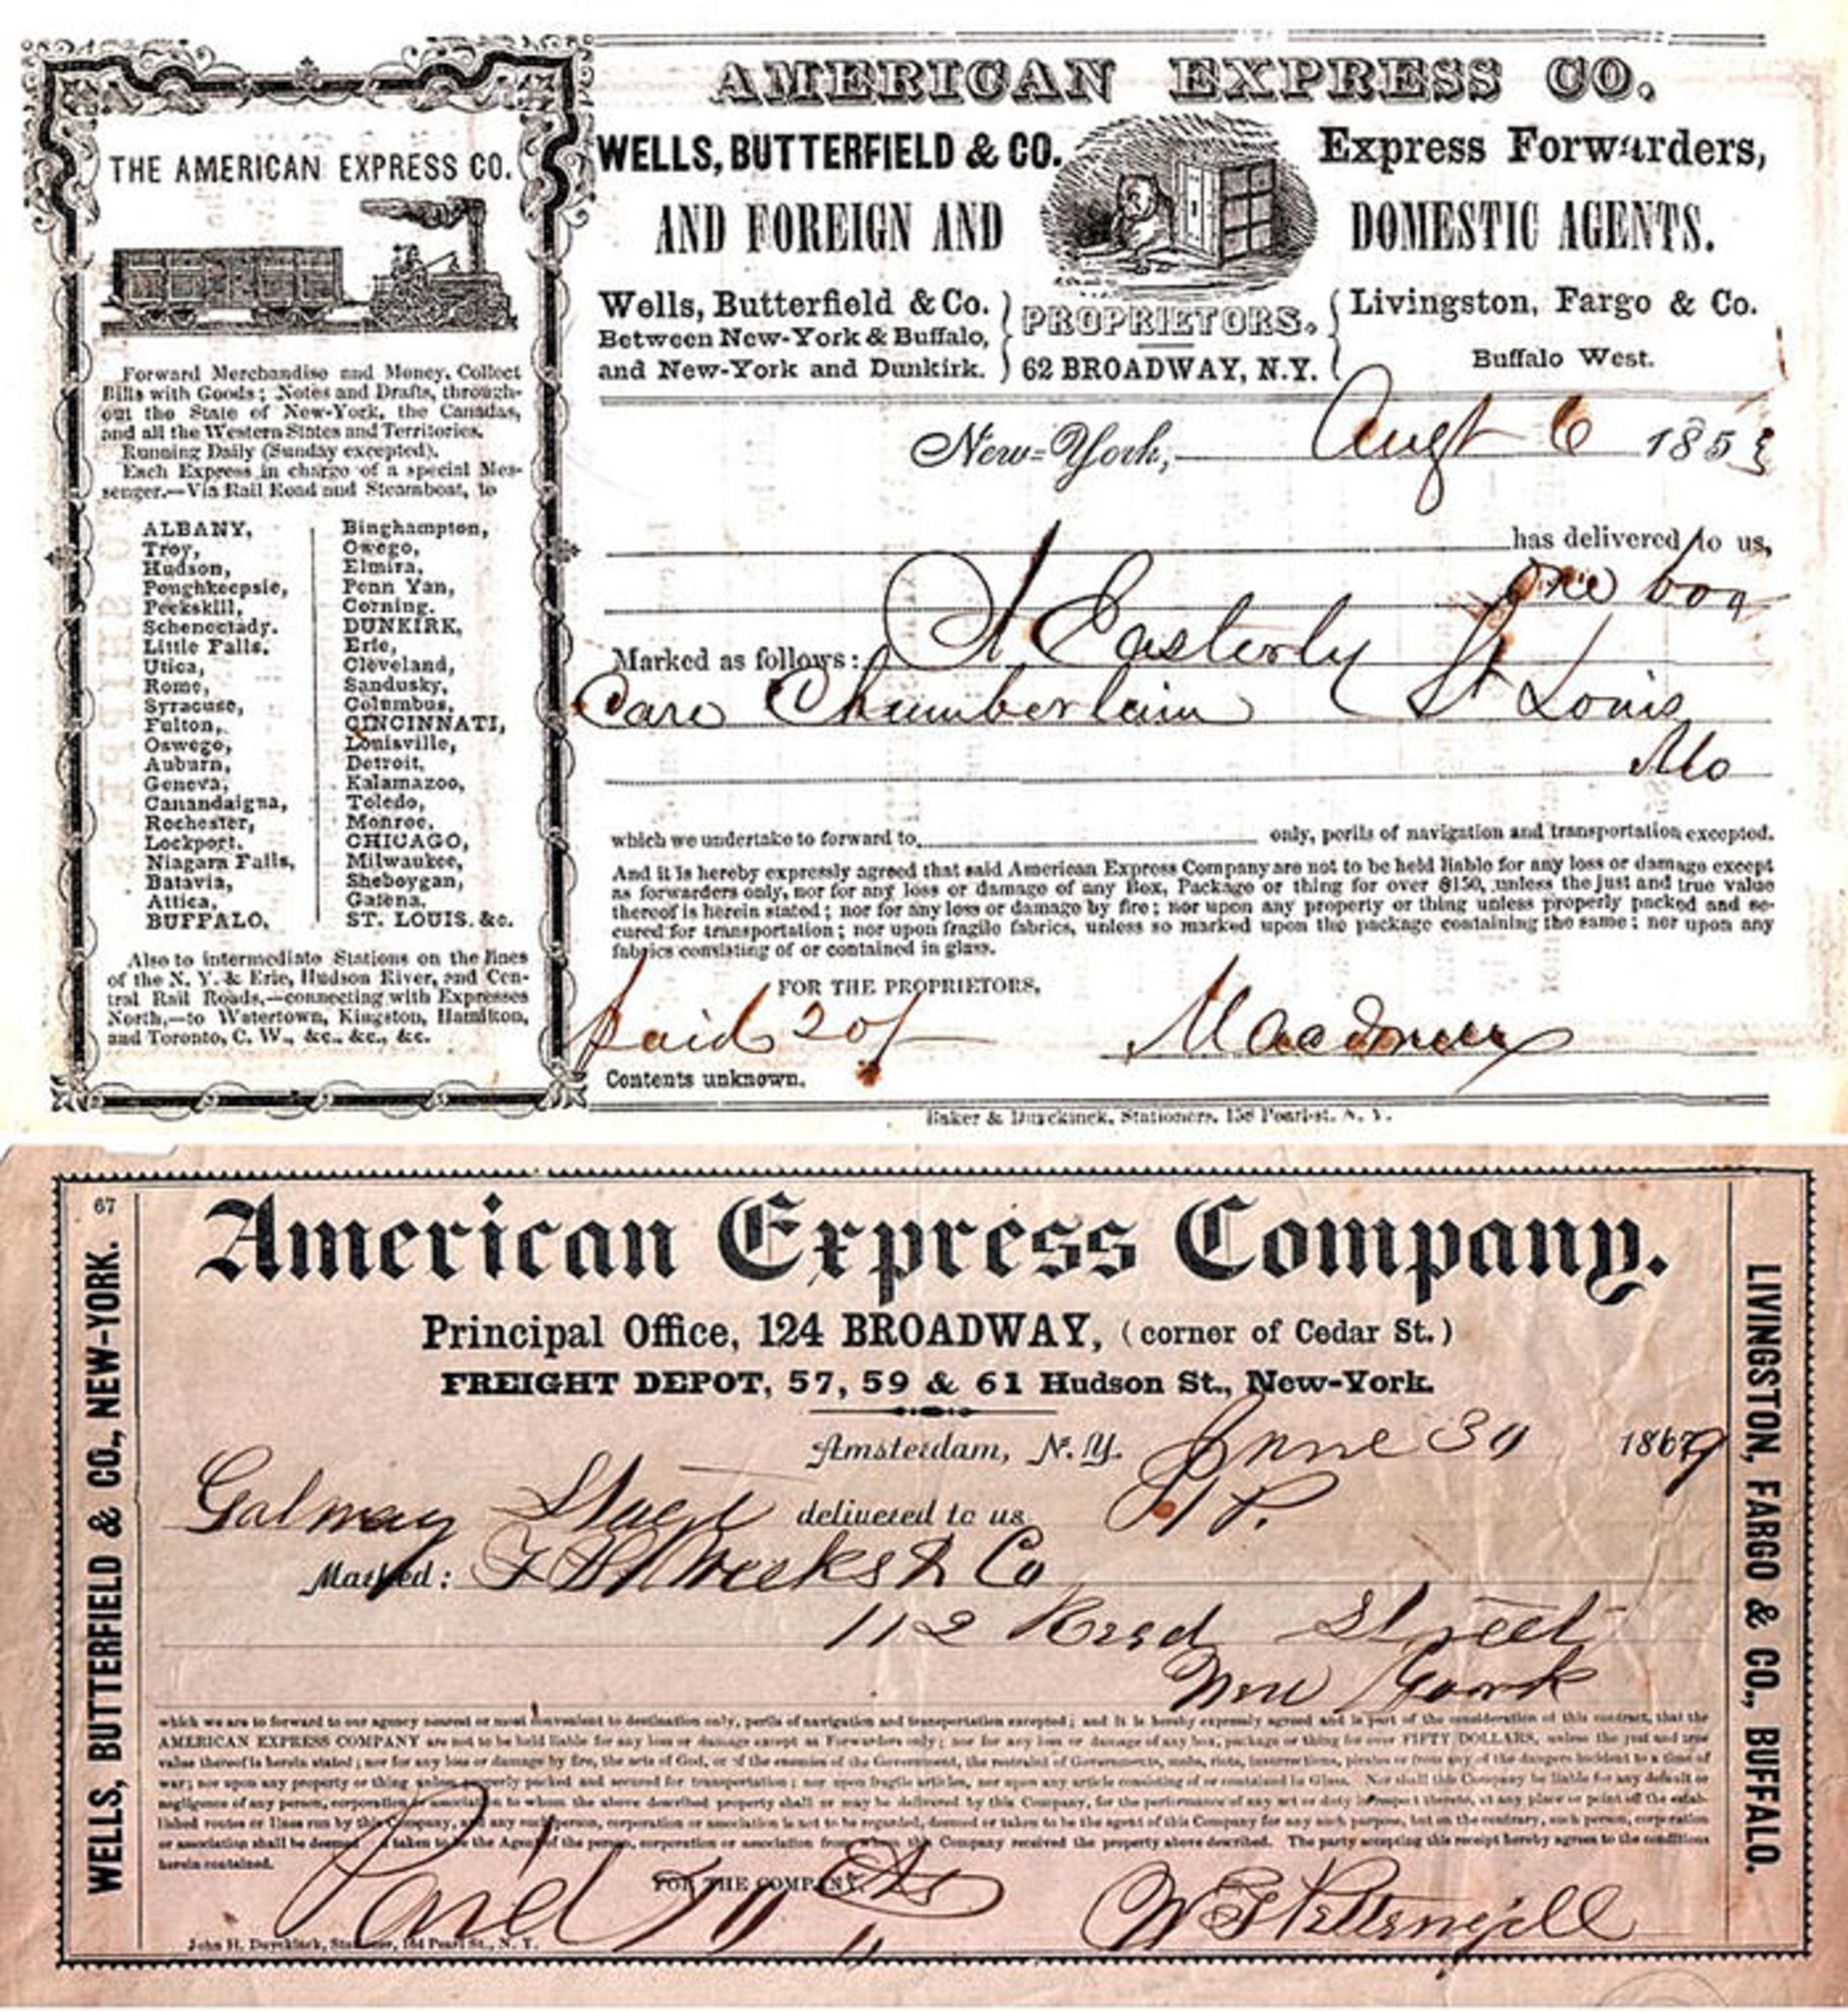 THE AMERICAN EXPRESS CO.
Forward Merchandise and Money, Collect
Bills with Goods; Notes and Drafts, through-
out the State of New-York, the Canadas,
and all the Western States and Territories.
Running Daily (Sunday excepted).
Each Express in charge of a special Mes-
senger.—Via Rail Road and Steamboat, to
ALBANY,
Troy,
Hudson,
Poughkeepsie,
Peekskill,
Schenectady.
Little Falls.
Utica,
Rome,
Syracuse,
Fulton,
Oswego,
Auburn,
Geneva,
Canandaigna,
Rochester,
Lockport.
Niagara Falls,
Batavia,
Attica,
BUFFALO,
Binghampton,
Owego,
Elmira,
Penn Yan,
Corning.
DUNKIRK,
Erie,
Cleveland,
Sandusky,
Columbus,
CINCINNATI,
Louisville,
Detroit,
Kalamazoo,
Toledo,
Monroe,
CHICAGO,
Milwaukee,
Sheboygan,
Galena,
ST. LOUIS. &c.
Also to intermediate Stations on the lines
of the N. Y. & Erie, Hudson River, and Cen-
tral Rail Roads,—connecting with Expresses
North,—to Watertown, Kingston, Hamilton,
and Toronto, C. W., &c., &c., &c.
AMERICAN EXPRESS CO.
WELLS, BUTTERFIELD & CO. Express Forwarders,
AND FOREIGN AND DOMESTIC AGENTS.
Wells, Butterfield & Co.
Between New-York & Buffalo,
and New-York and Dunkirk.
PROPRIETORS,
62 BROADWAY, N.Y.
Livingston, Fargo & Co.
Buffalo West.
New-York, Augt 6 1853
has delivered to us,
one box
Marked as follows: A Easterly St Louis
Care Chamberlain Mo
which we undertake to forward to only, perils of navigation and transportation excepted.
And it is hereby expressly agreed that said American Express Company are not to be held liable for any loss or damage except
as forwarders only, nor for any loss or damage of any Box, Package or thing for over $150, unless the just and true value
thereof is herein stated; nor for any loss or damage by fire; nor upon any property or thing unless properly packed and se-
cured for transportation; nor upon fragile fabrics, unless so marked upon the package containing the same; nor upon any
fabrics consisting of or contained in glass.
FOR THE PROPRIETORS,
paid 20/
Contents unknown.
Baker & Duyckinck, Stationers, 158 Pearl-st. N. Y.
67
WELLS, BUTTERFIELD & CO., NEW-YORK.
American Express Company.
Principal Office, 124 BROADWAY, (corner of Cedar St.)
FREIGHT DEPOT, 57, 59 & 61 Hudson St., New-York.
Amsterdam, N. Y. June 30 1869
Galway Stage delivered to us
Marked: Weeks & Co
112 Read Street
New York
which we are to forward to our agency nearest or most convenient to destination only, perils of navigation and transportation excepted; and it is hereby expressly agreed and is part of the consideration of this contract, that the
AMERICAN EXPRESS COMPANY are not to be held liable for any loss or damage except as Forwarders only; nor for any loss or damage of any box, package or thing for over FIFTY DOLLARS, unless the just and true
value thereof is herein stated; nor for any loss or damage by fire, the acts of God, or of the enemies of the Government, the restraint of Governments, mobs, riots, insurrections, pirates or from any of the dangers incident to a time of
war; nor upon any property or thing unless properly packed and secured for transportation; nor upon fragile articles, nor upon any article consisting of or contained in Glass. Nor shall this Company be liable for any default or
negligence of any person, corporation or association to whom the above described property shall or may be delivered by this Company, for the performance of any act or duty in respect thereto, at any place or point off the estab-
lished routes or lines run by this Company, and any such person, corporation or association is not to be regarded, deemed or taken to be the agent of this Company for any such purpose, but on the contrary, such person, corporation
or association shall be deemed taken to be the Agent of the person, corporation or association from whom the Company received the property above described. The party accepting this receipt hereby agrees to the conditions
herein contained.
FOR THE COMPANY,
Paid
John H. Duyckinck, Stationer, 164 Pearl St., N. Y.
LIVINGSTON, FARGO & CO., BUFFALO.